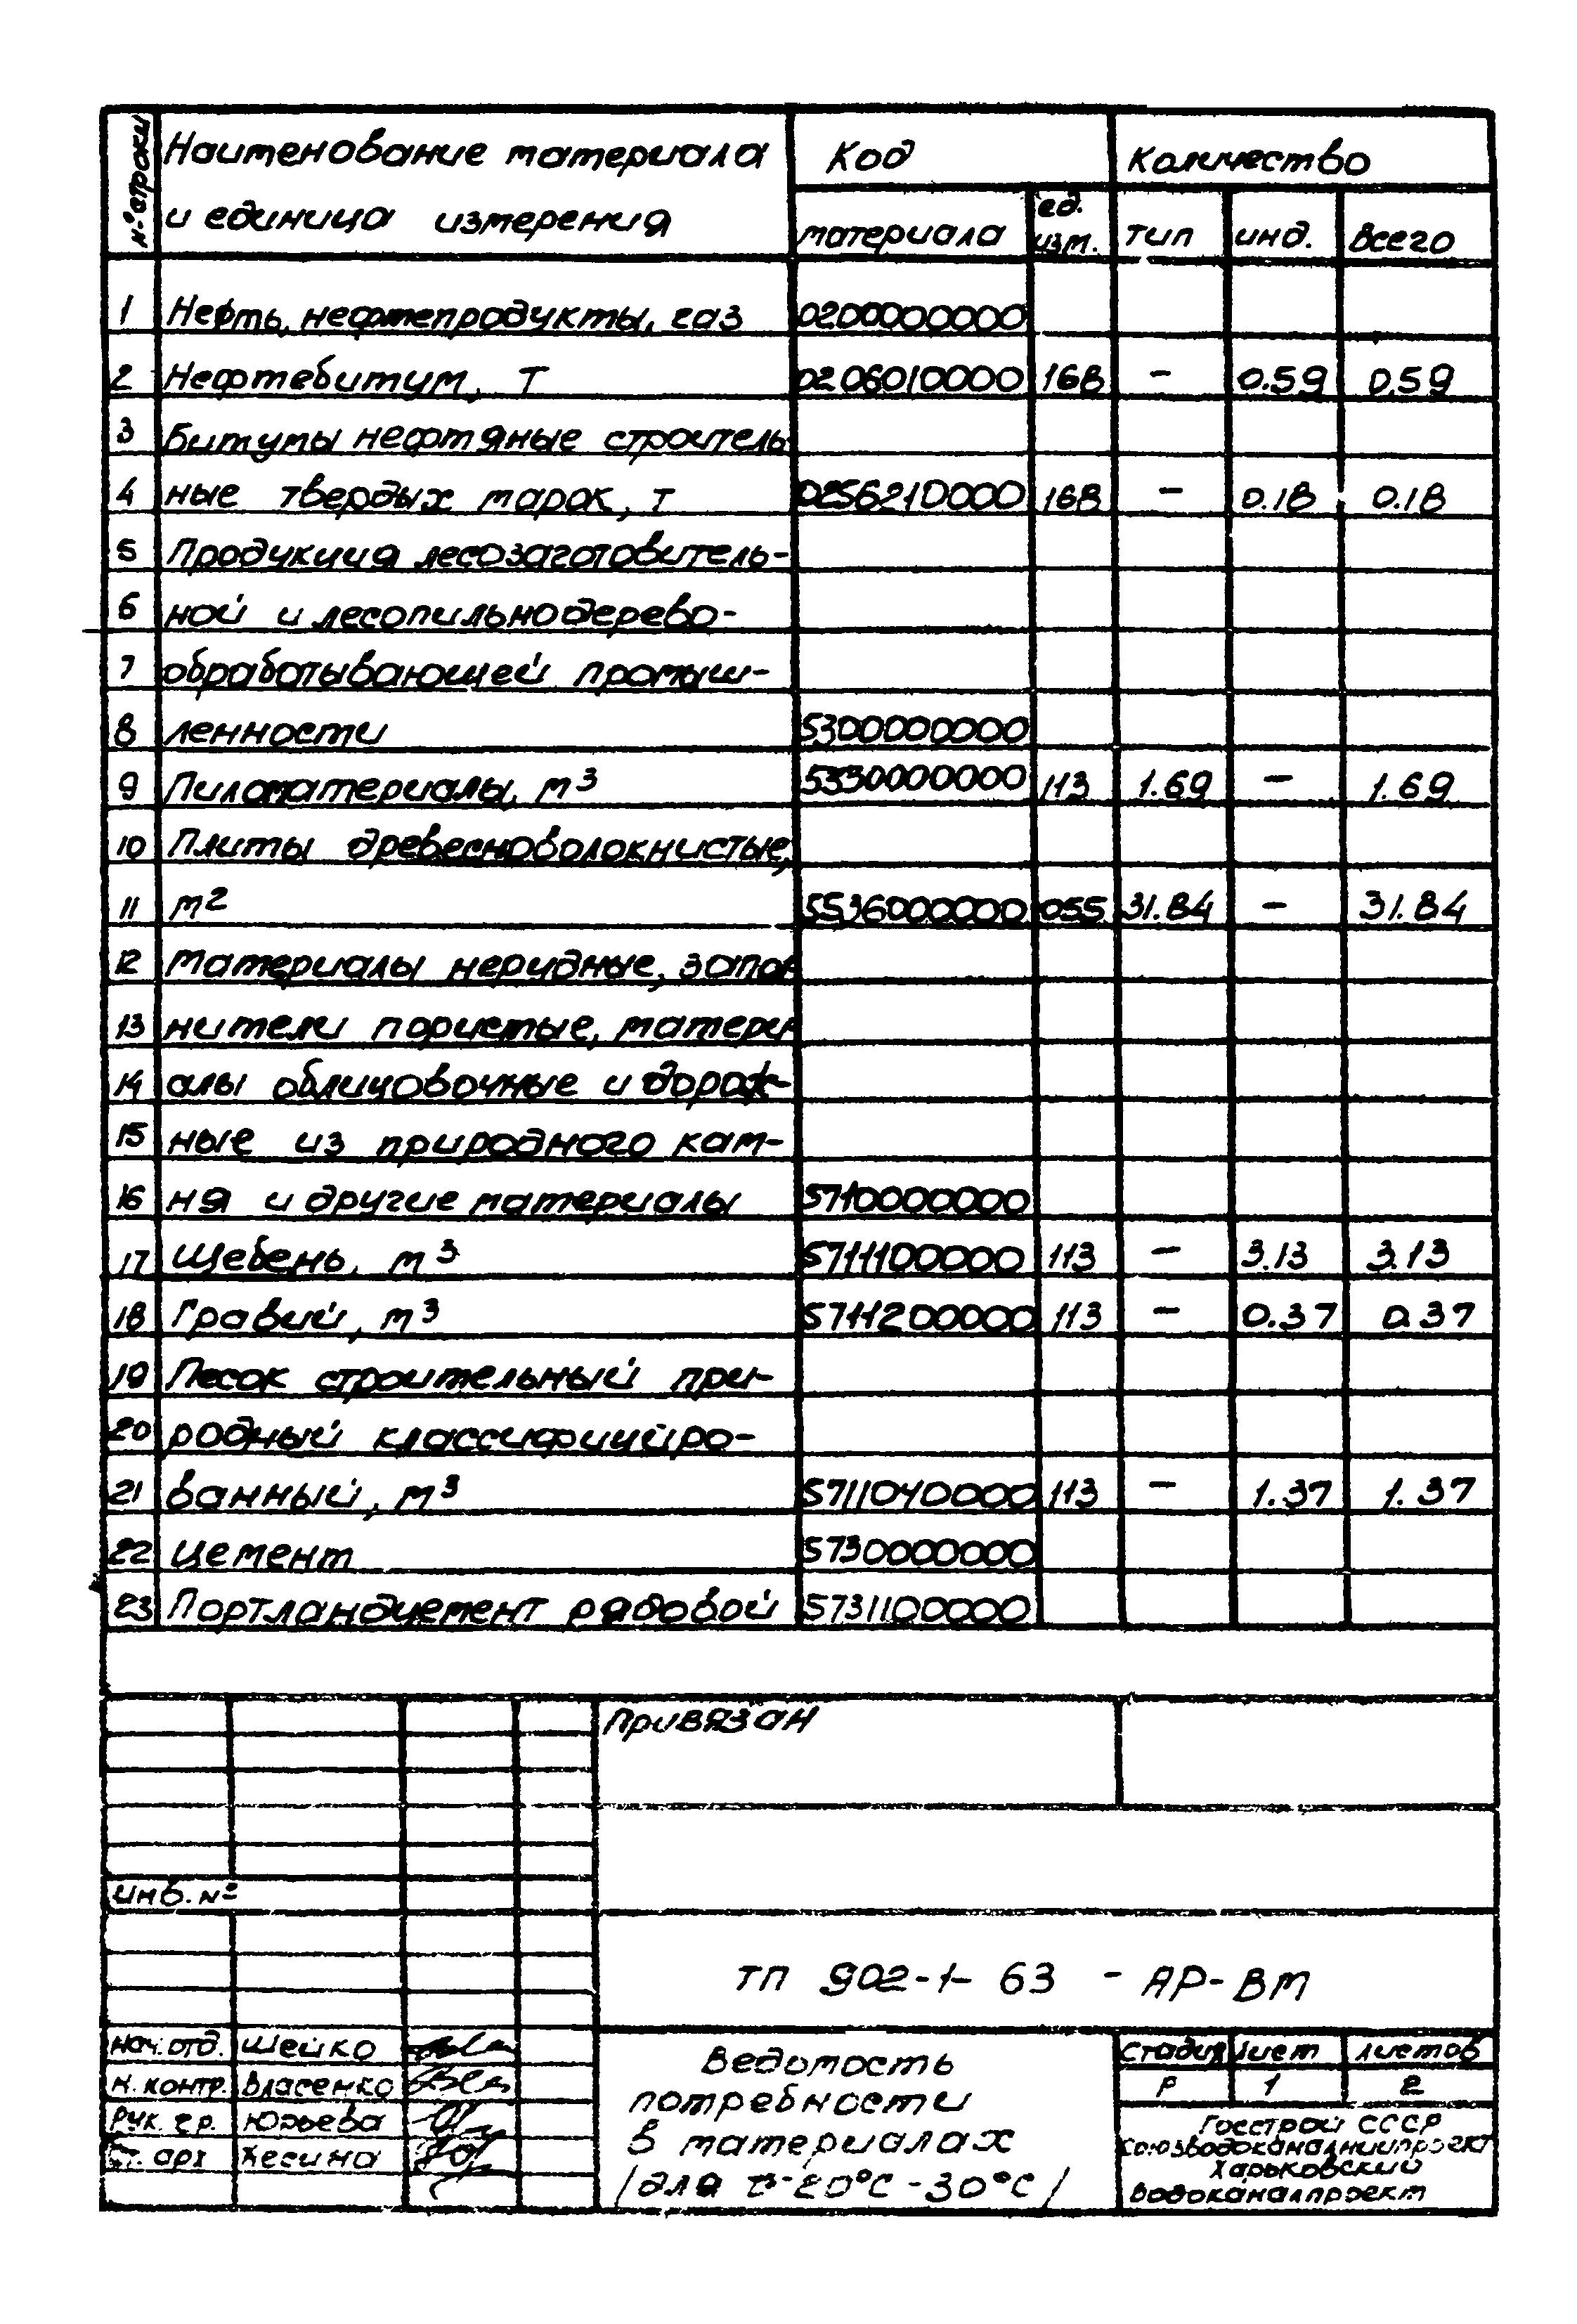 № строки Наименование материала Код Количество
и единица измерения материала ед. изм. тип инд. всего
1 Нефть, нефтепродукты, газ 0200000000
2 Нефтебитум, т 0206010000 168 – 0.59 0.59
3 Битумы нефтяные строитель-
4 ные твердых марок, т 0256210000 168 – 0.18 0.18
5 Продукция лесозаготовитель-
6 ной и лесопильнодерево-
7 обрабатывающей промыш-
8 ленности 5300000000
9 Пиломатериалы, м3 5330000000 113 1.69 – 1.69
10 Плиты древесноволокнистые,
11 м2 5536000000 055 31.84 – 31.84
12 Материалы нерудные, запол
13 нители пористые, матери
14 алы облицовочные и дорож-
15 ные из природного кам-
16 ня и другие материалы 5710000000
17 Щебень, м3 5711100000 113 – 3.13 3.13
18 Гравий, м3 5711200000 113 – 0.37 0.37
19 Песок строительный при-
20 родный классифициро-
21 ванный, м3 5711040000 113 – 1.37 1.37
22 Цемент 5730000000
23 Портландцемент рядовой 5731100000
Привязан
инв. №
ТП 902-1-63 - АР-ВМ
нач. отд. Шейко
н. контр. Власенко
Рук. гр. Юрьева
Ст. арх Хесина
Ведомость
потребности
в материалах
/для t-20°С -30°С/
Стадия Лист Листов
Р 1 2
Госстрой СССР
Союзводоканалниипроект
Харьковский
Водоканалпроект